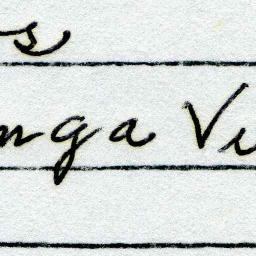 s
nga Vi